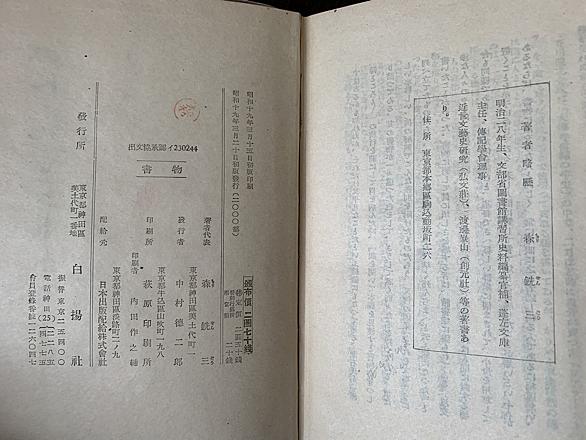 著者略歴 森 銑三
明治二八年生、文部省圖書館講習所史料編纂官補、蓬左文庫
主任、傳記學會理事
近世文藝史研究(弘文莊)、渡邊崋山(創元社)等の著書あ
り。
住所 東京都本鄕區駒込動坂町二六
昭和十九年三月十五日初版印刷
昭和十九年三月二十日初版發行(二〇〇〇部)
出文協承認イ230244
書物
頒布價 二圓七十錢
定價 二圓五十錢
二十錢
著者代表 森 銑三
東京都神田區美土代町一
發行者 中村德二郎
東京都牛込區山吹町一九八
印刷所 萩原印刷所
印刷者 內田作之輔
東京都神田區淡路町二ノ九
配給元 日本出版配給株式會社
發行所
東京都神田區
美土代町一番地
白揚社
振替東京二五四〇〇
會員登錄番號一二六〇四七